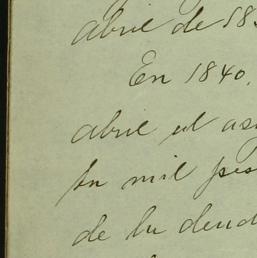 abril de 183
En 1840,
abril el as
mil pes
de la deud